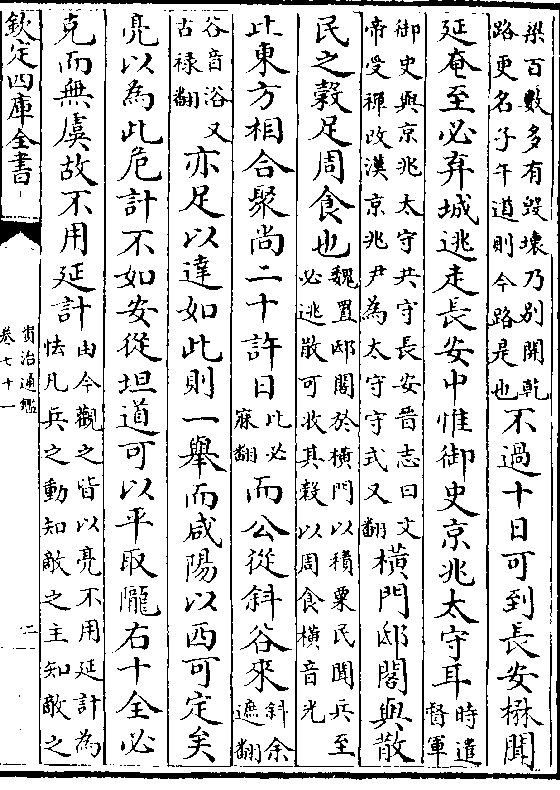 梁百數多有毁壊乃别開乾
路更名子午道則今路是也
不過十日可到長安楙聞
延奄至必弃城逃走長安中惟御史京兆太守耳
時遣
督軍
御史與京兆太守共守長安晉志曰文
帝受禪改漢京兆尹為太守守式又翻
橫門邸閣與散
民之糓足周食也
魏置邸閣於橫門以積粟民聞兵至
必逃散可收其糓以周食橫音光
比東方相合聚尚二十許日
比必
寐翻
而公從斜谷來
斜余
遮翻
谷音浴又
古禄翻
亦足以達如此則一舉而咸陽以西可定矣
亮以為此危計不如安從坦道可以平取隴右十全必
克而無虞故不用延計
由今觀之皆以亮不用延計為
怯凡兵之動知敵之主知敵之
欽定四庫全書
資治通鑑
卷七十一
二